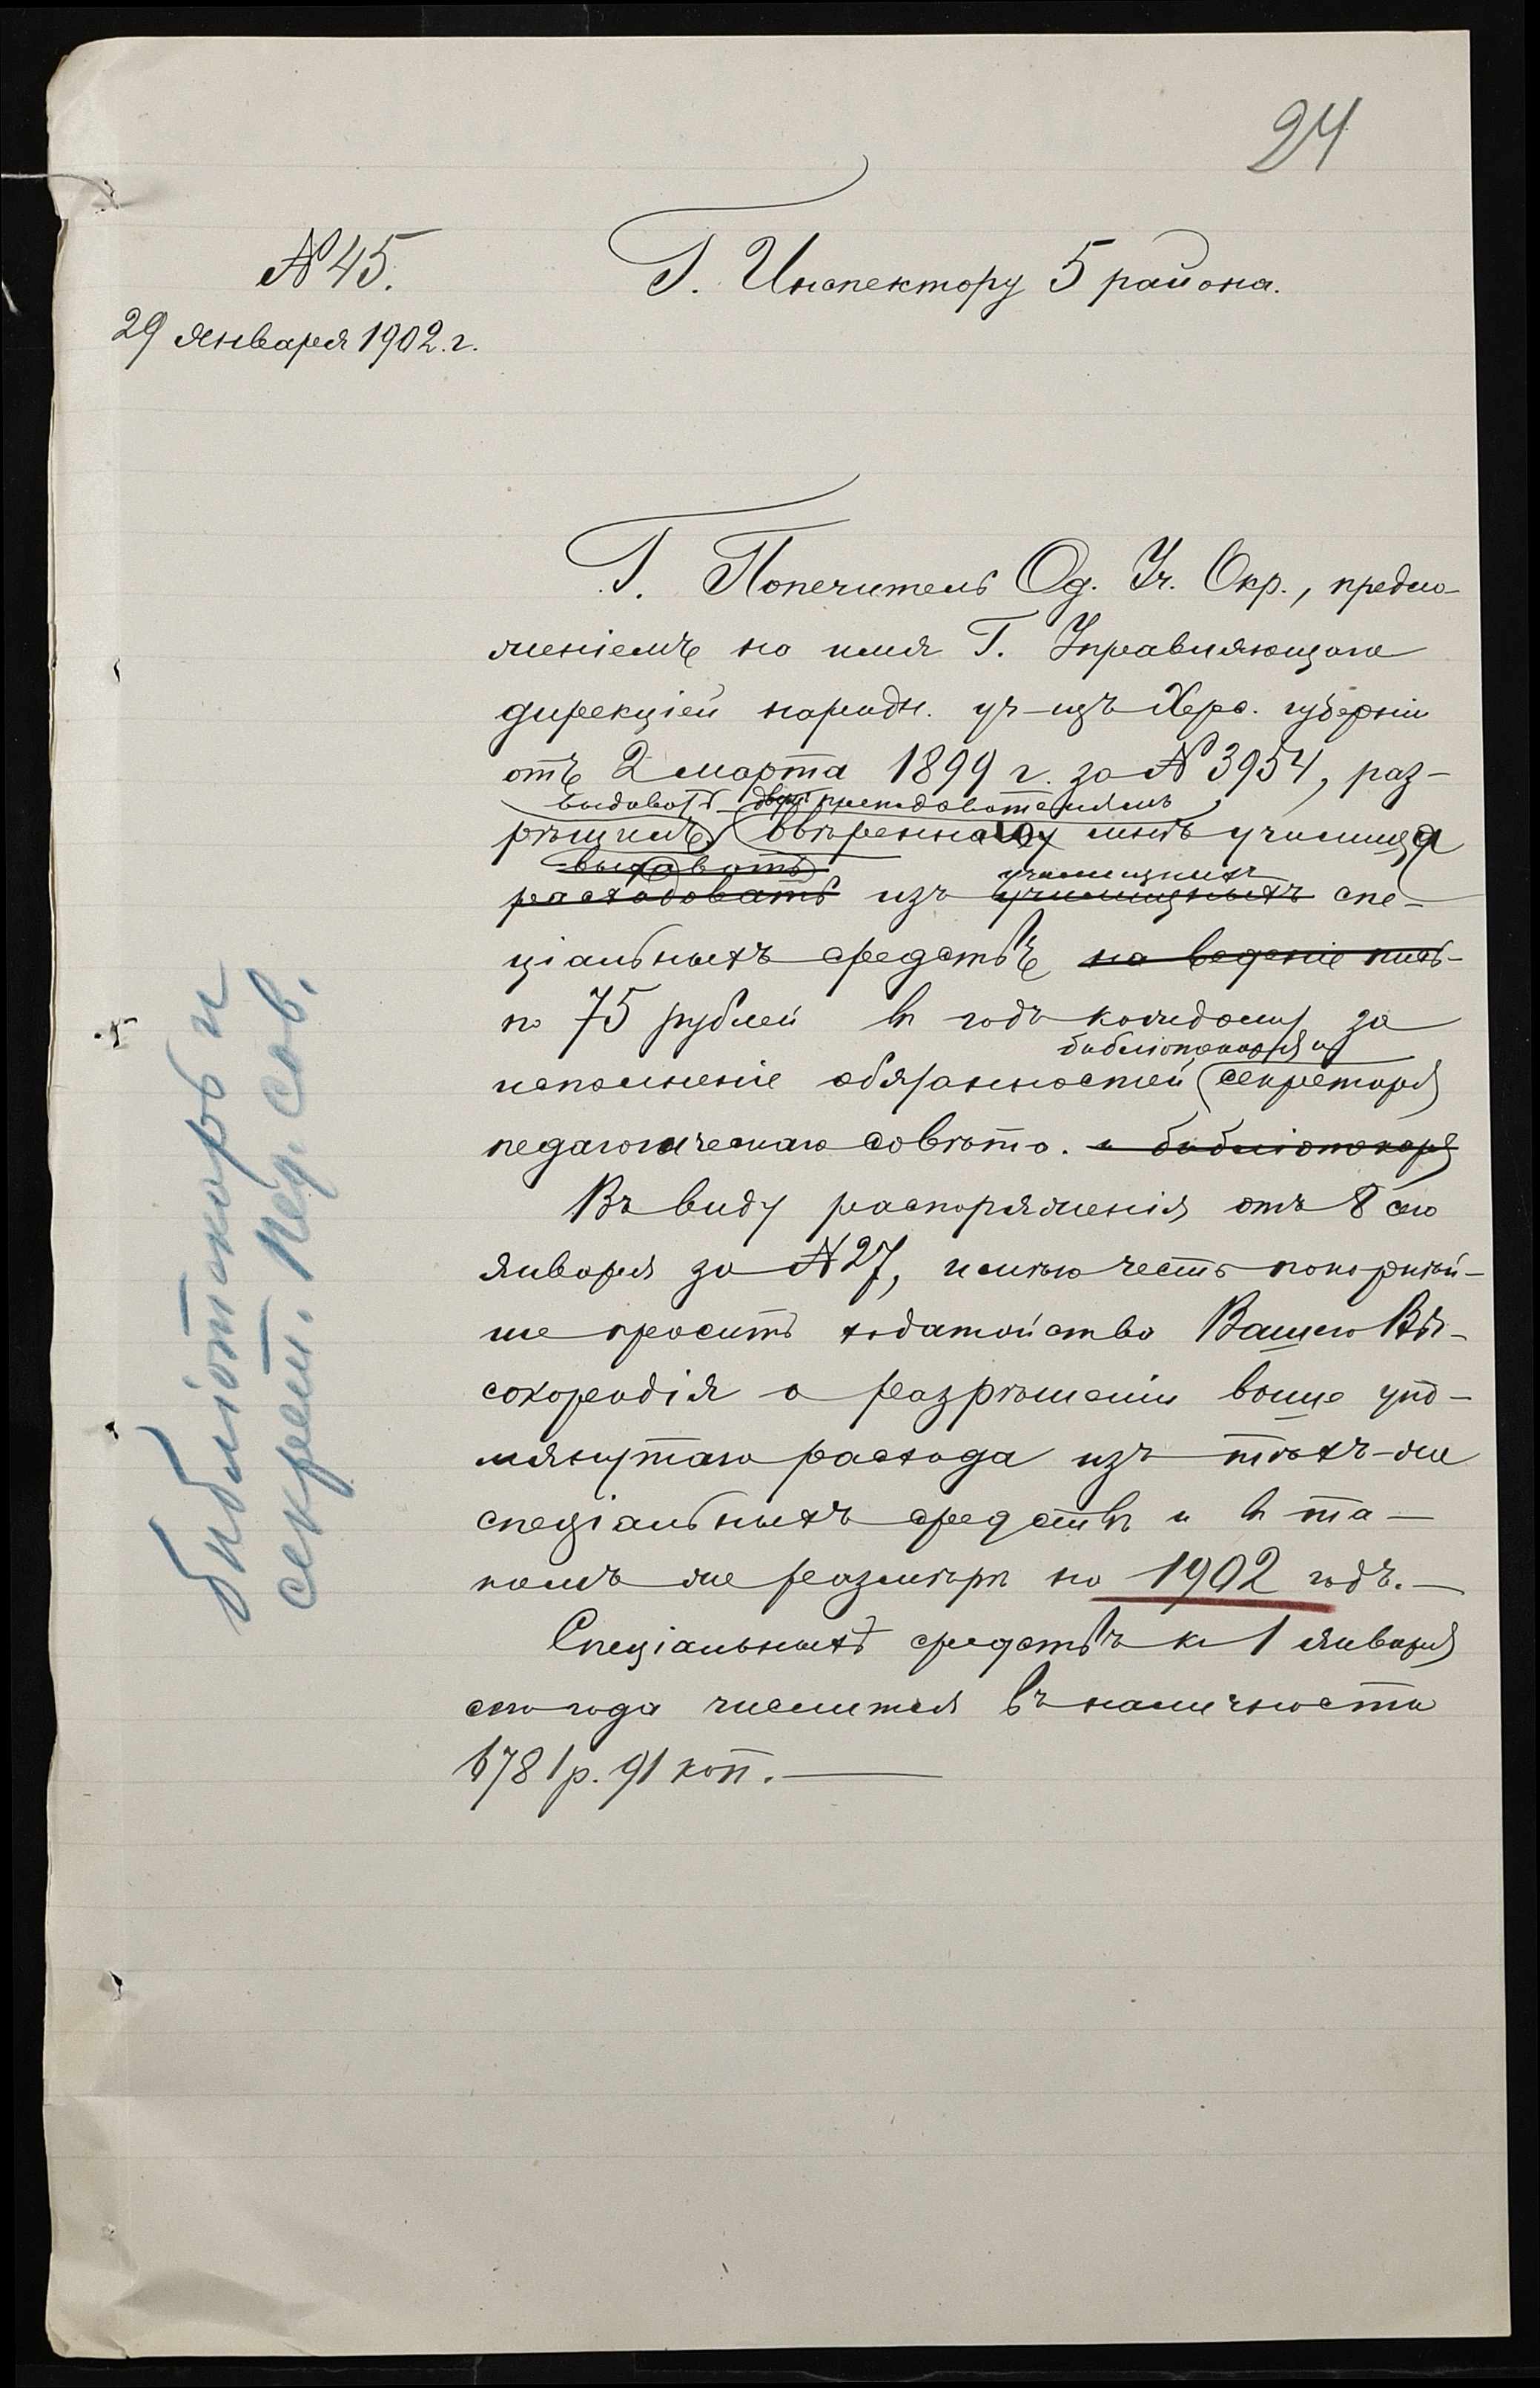 24
№ 45.
29 января 1902. г.
Г. Инспектору 5 района.
Г. Попечитель Од. Уч. Окр., предло-
женіемъ на имя Г. Управляющаго
дирекціей народн. уч-щъ Херс. губерніи
отъ 2 марта 1899 г. за № 3954, раз-
выдавать двум преподавателямъ
рѣшилъ ввѣреннаго мнѣ училища
выдавать училищныхъ
расходовать изъ училищныхъ спе-
ціальныхъ средствъ на веденіе пись-
по 75 рублей въ годъ каждому за
библіотекаря и
исполненіе обязанностей секретаря
педагогическаго совѣта. и библіотекаря
Въ виду распоряженія отъ 8 сего
января за № 27, имѣю честь покорнѣй-
ше просить ходатайства Вашего Вы-
сокородія о разрѣшеніи выше упо-
мянутаго расхода изъ тѣхъ-же
спеціальныхъ средствъ и въ та-
комъ же размѣрѣ на 1902 годъ.—
Спеціальныхъ средствъ къ 1 января
сего года числится въ наличности
1781 р. 91 коп.—
библіотекарь и
секрет. Пед. Сов.